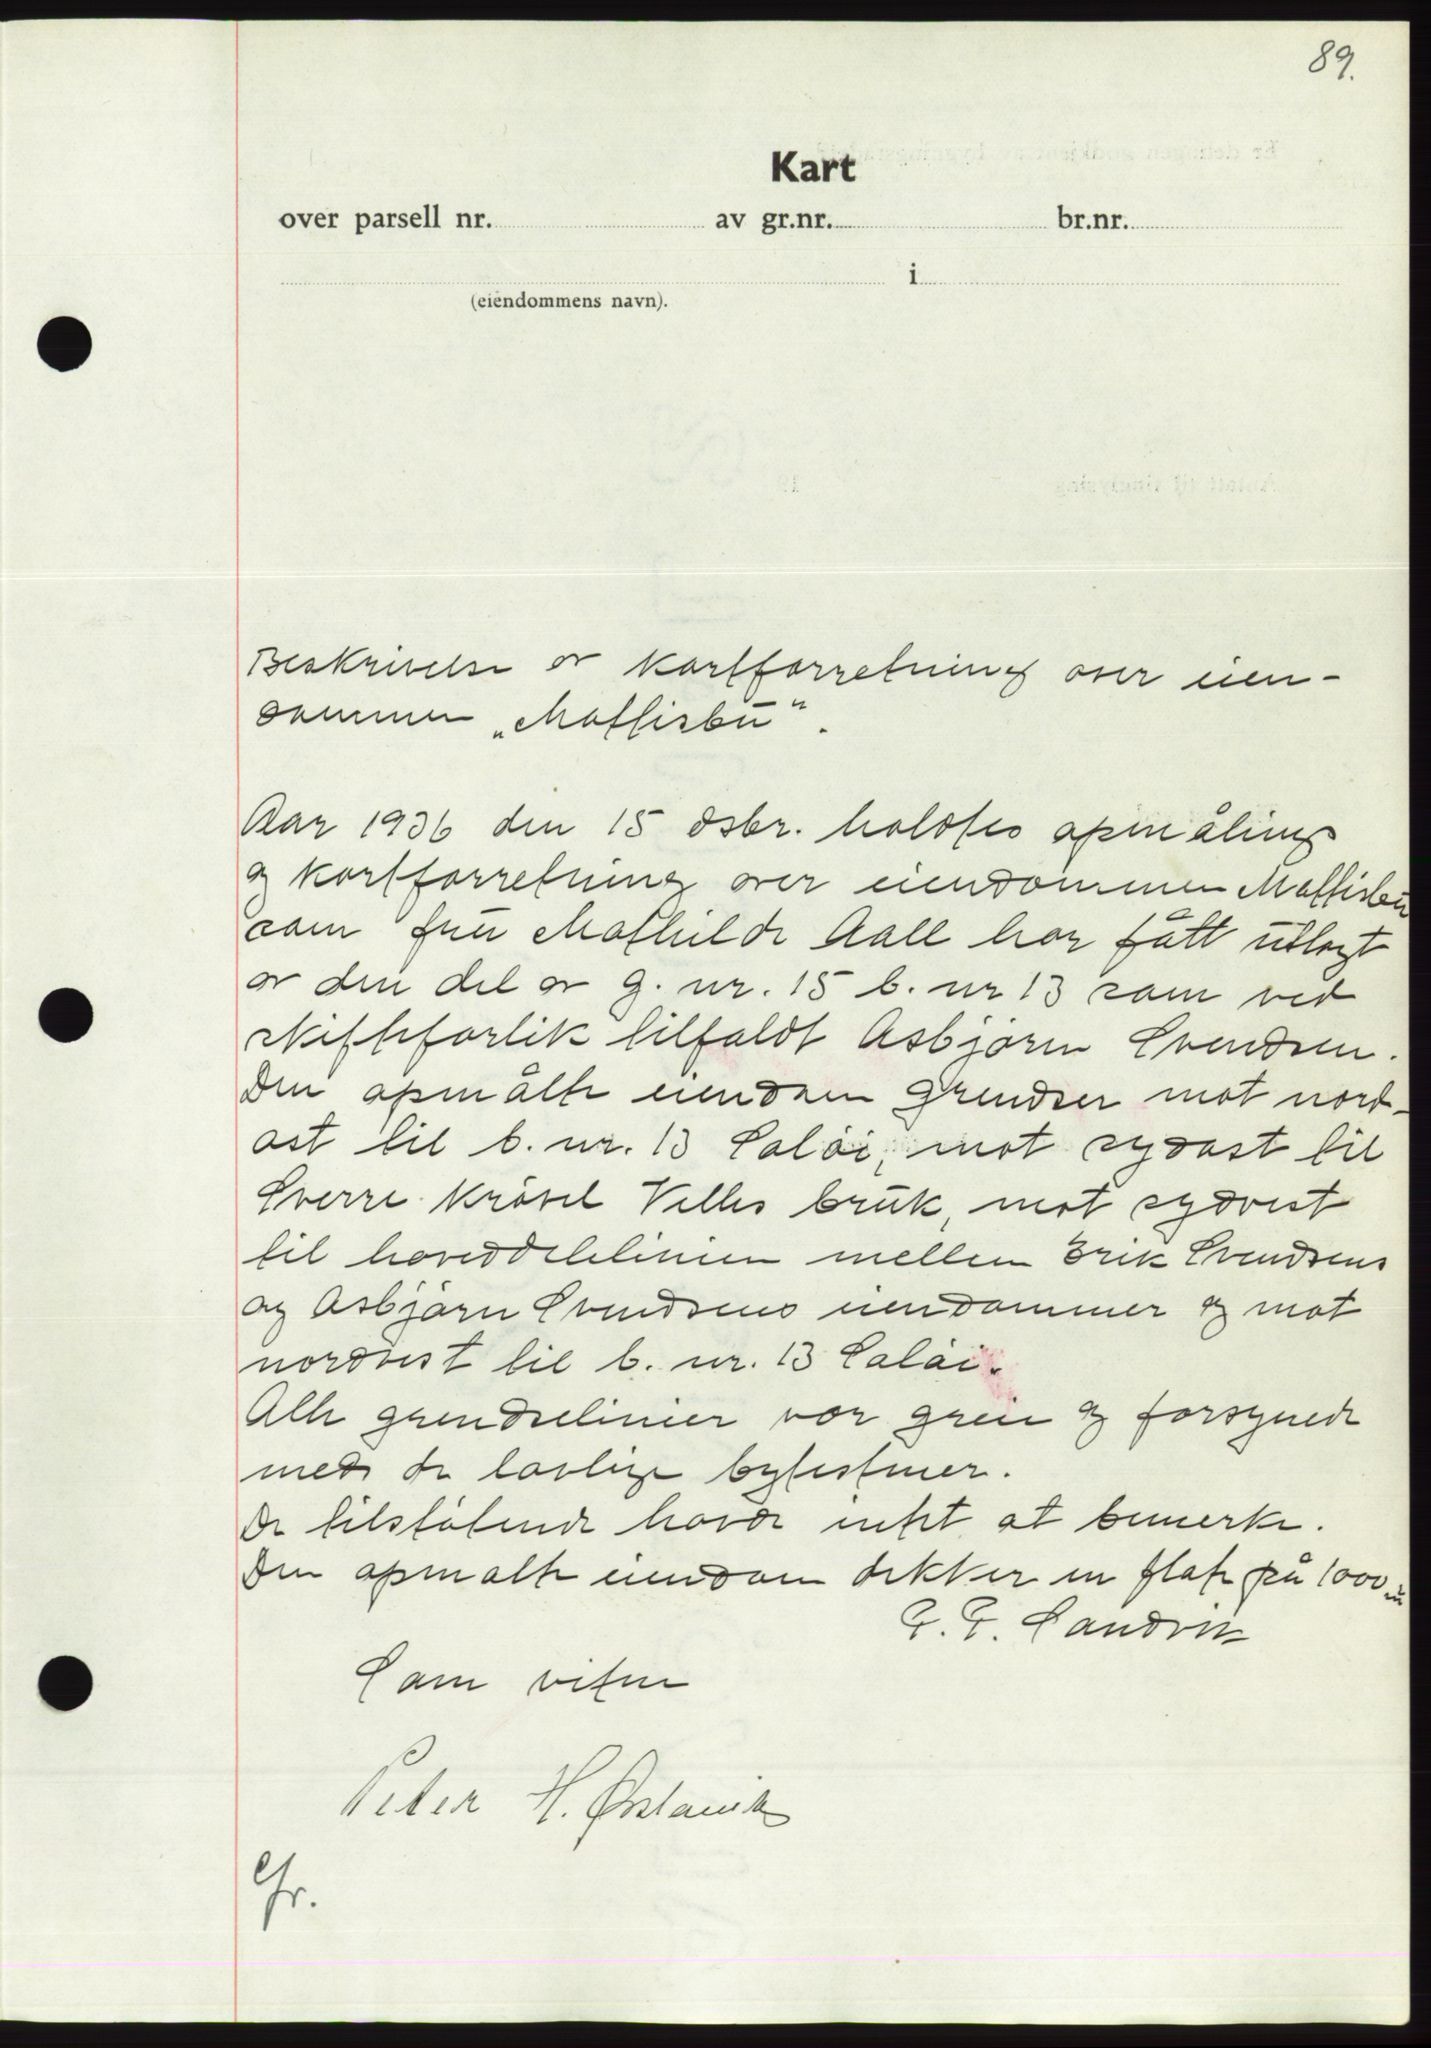 89.
Kart
over parsell nr. av gr.nr. br.nr.
i
(eiendommens navn).
Beskrivelse av kartforretning over eien-
dommen „Mattisbu“.
Aar 1936 den 15 dsbr. holdtes opmåling
og kartforretning over eiendommen Mattisbu
som fru Mathilde Aall har fått utlagt
av den del av g. nr. 15 b. nr 13 som ved
skifteforlik tilfaldt Asbjørn Svendsen.
Den opmålte eiendom grendser mot nord-
ost til b. nr. 13 Saløi, mot sydost til
Sverre Krøsel Velles bruk, mot sydvest
til hoveddelelinien mellem Erik Svendsens
og Asbjørn Svendsens eiendommer og mot
nordvest til b. nr. 13 Saløi.
Alle grendselinier var greie og forsynede
med de lovlige bytestener.
De tilstøtende havde intet at bemerke.
Den opmålte eiendom dekker en flate på 1000 m²
Sandvik
Som vitne
Peter H.